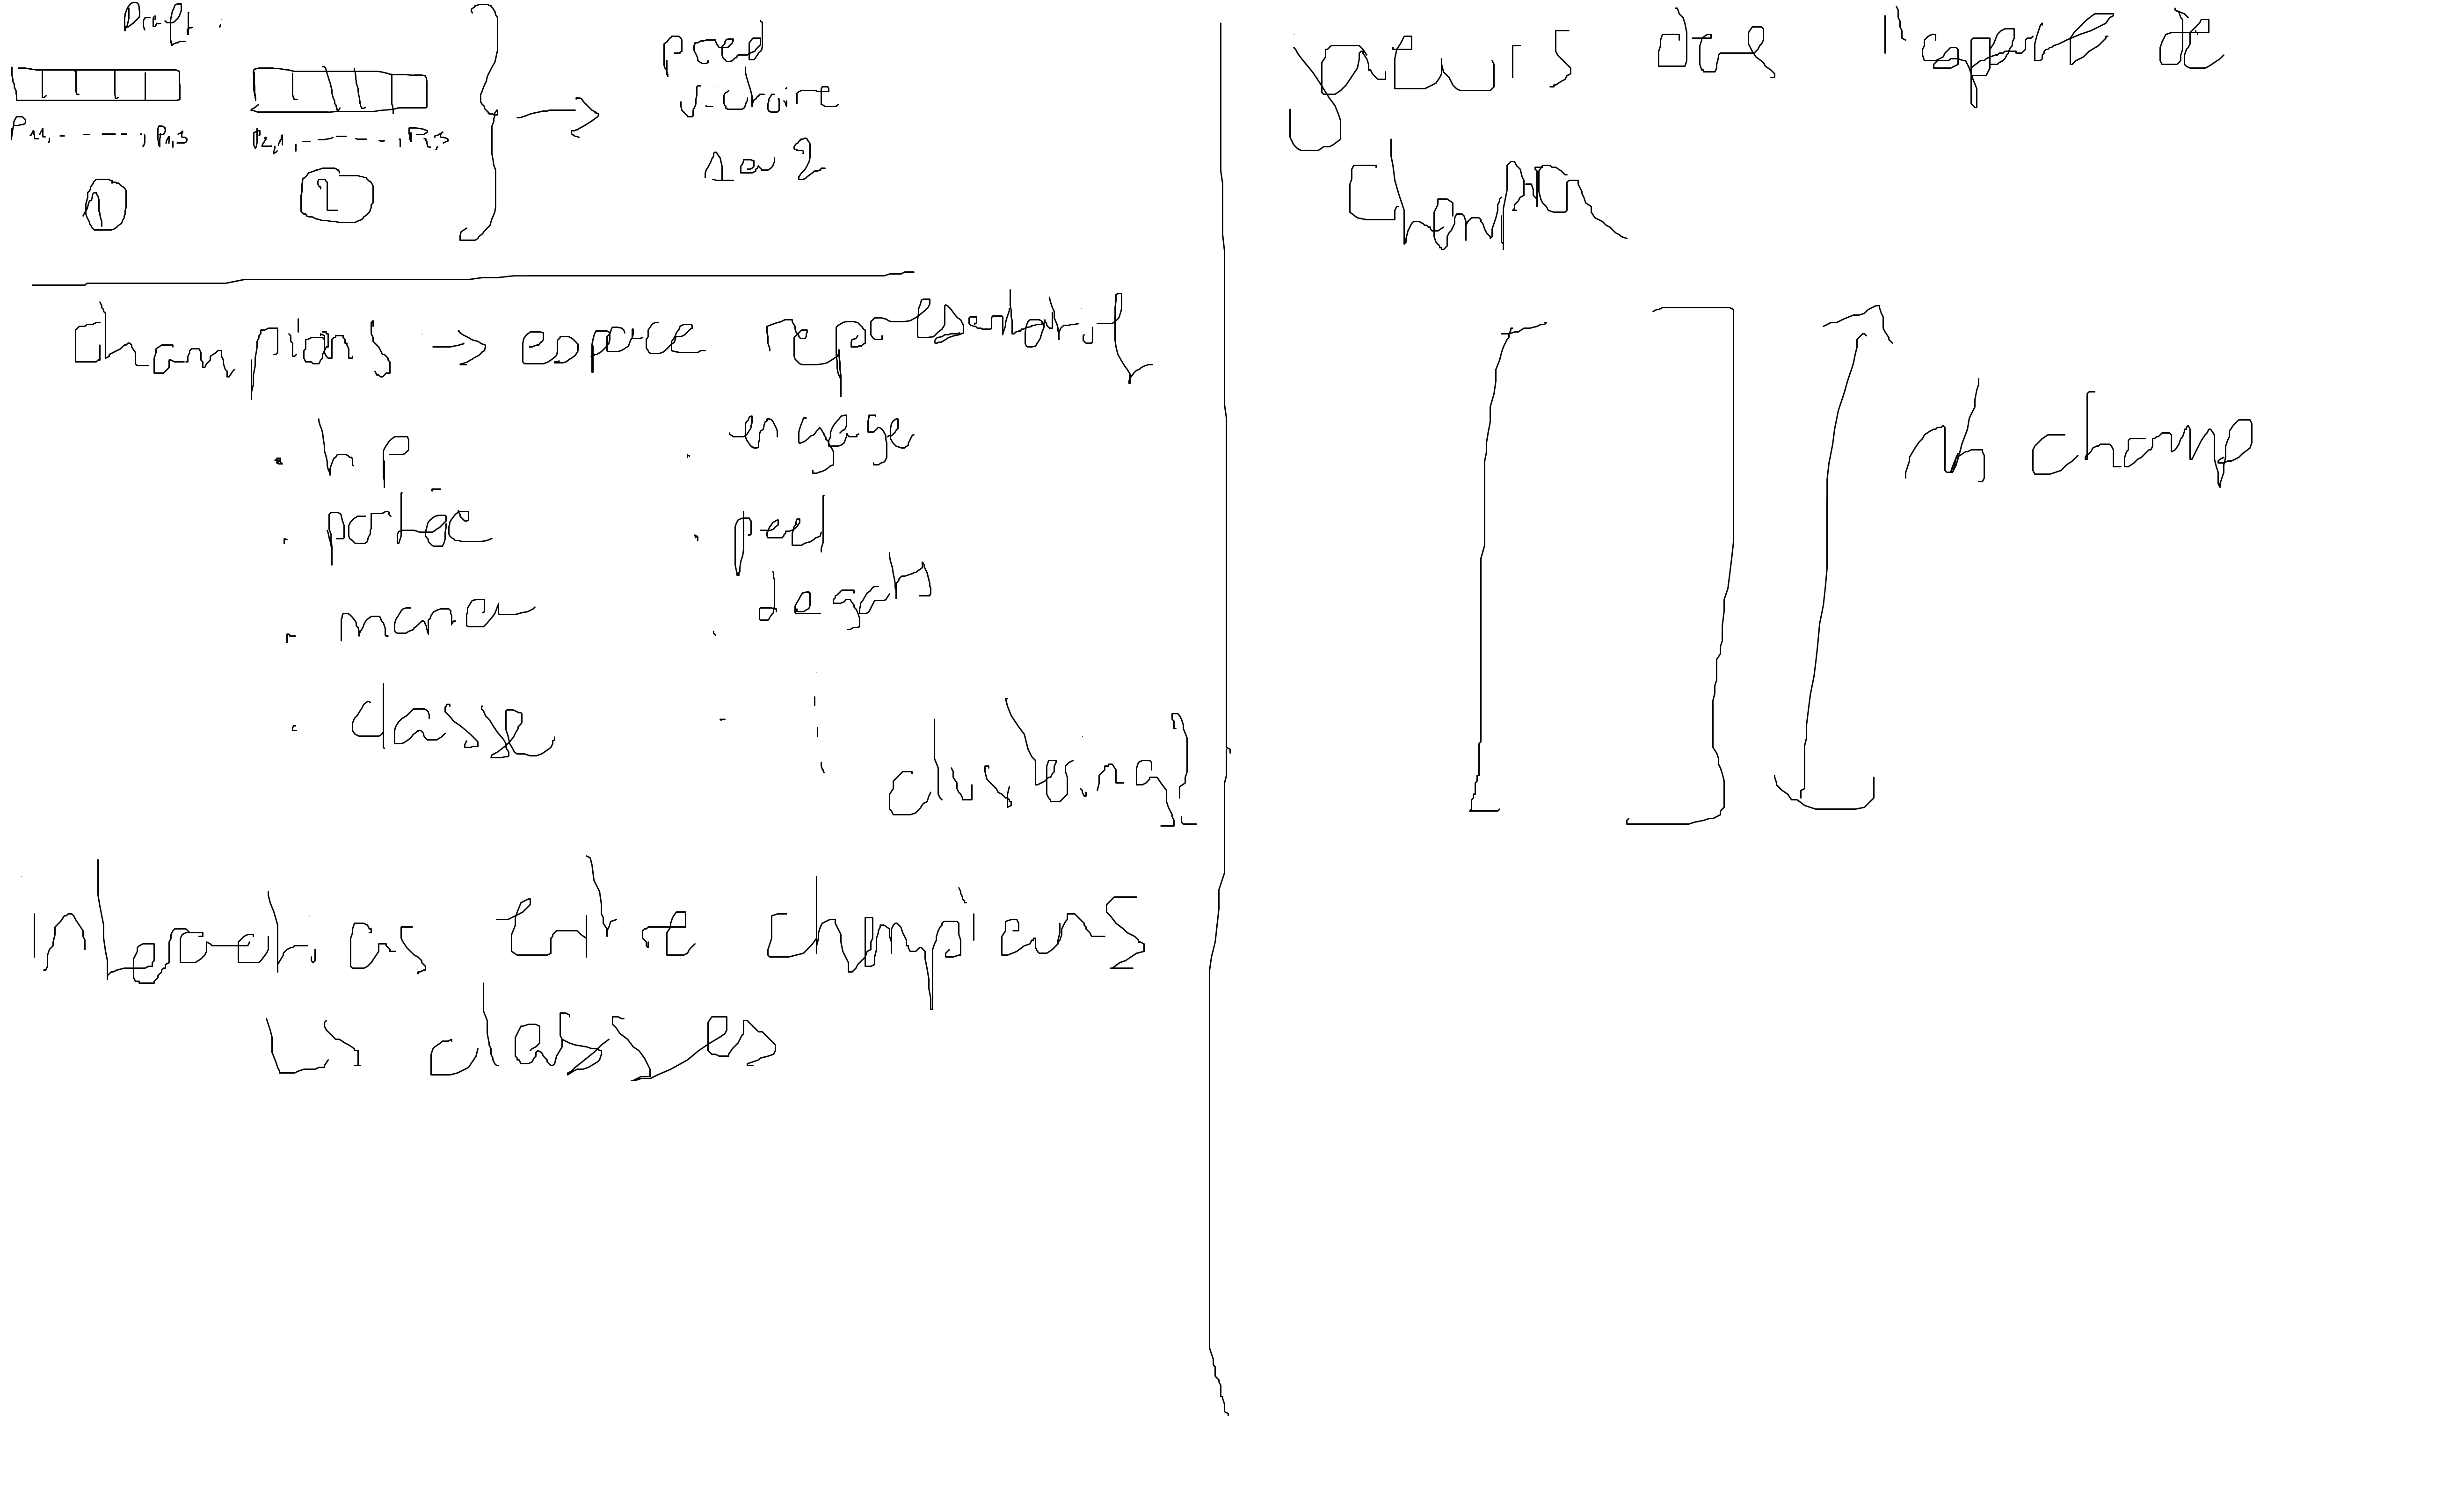 Draft :
P1,1, - - - - -, P1,5
P2,1, - - - - -, P2,5
1
2
pred
victoire
1 ou 2
champions → espace representatif
. hp
. portée
. mana
. classe
. engage
. peel
. degats
.
clustering!
Interactions entre champions
↳ classes
joueurs dans l'espace de
champion
nb champ